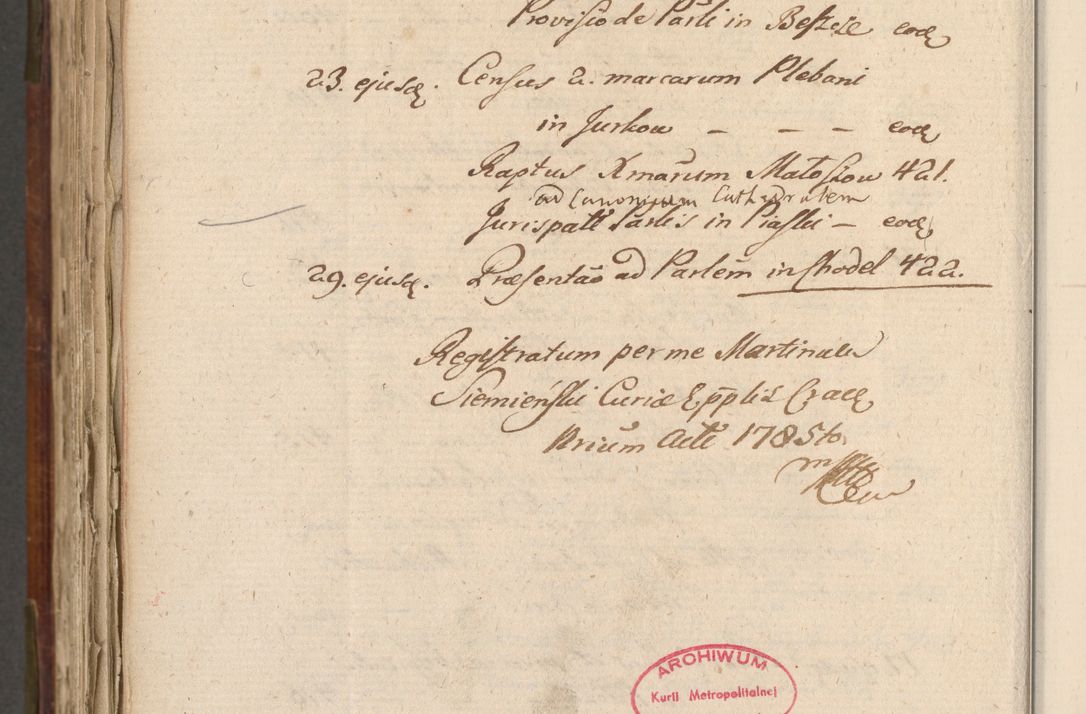 Provisio de Parli in Beszcze eodę
23. ejusdę. Census 2. marcarum Plebani
in Jurkow – – – eodę
Raptus Xmarum Matoszow 421.
ad Canonicum Cathedralem
Jurispatt Parlis in Piaski – eodę
29. ejusdę. Præsentaõ ad Parlem in Chodel 422.
Registratum per me Martinum
Siemieński Curiæ Epplis Crac
Arium Actt 1785to
mp
ARCHIWUM
Kurii Metropolitalnej